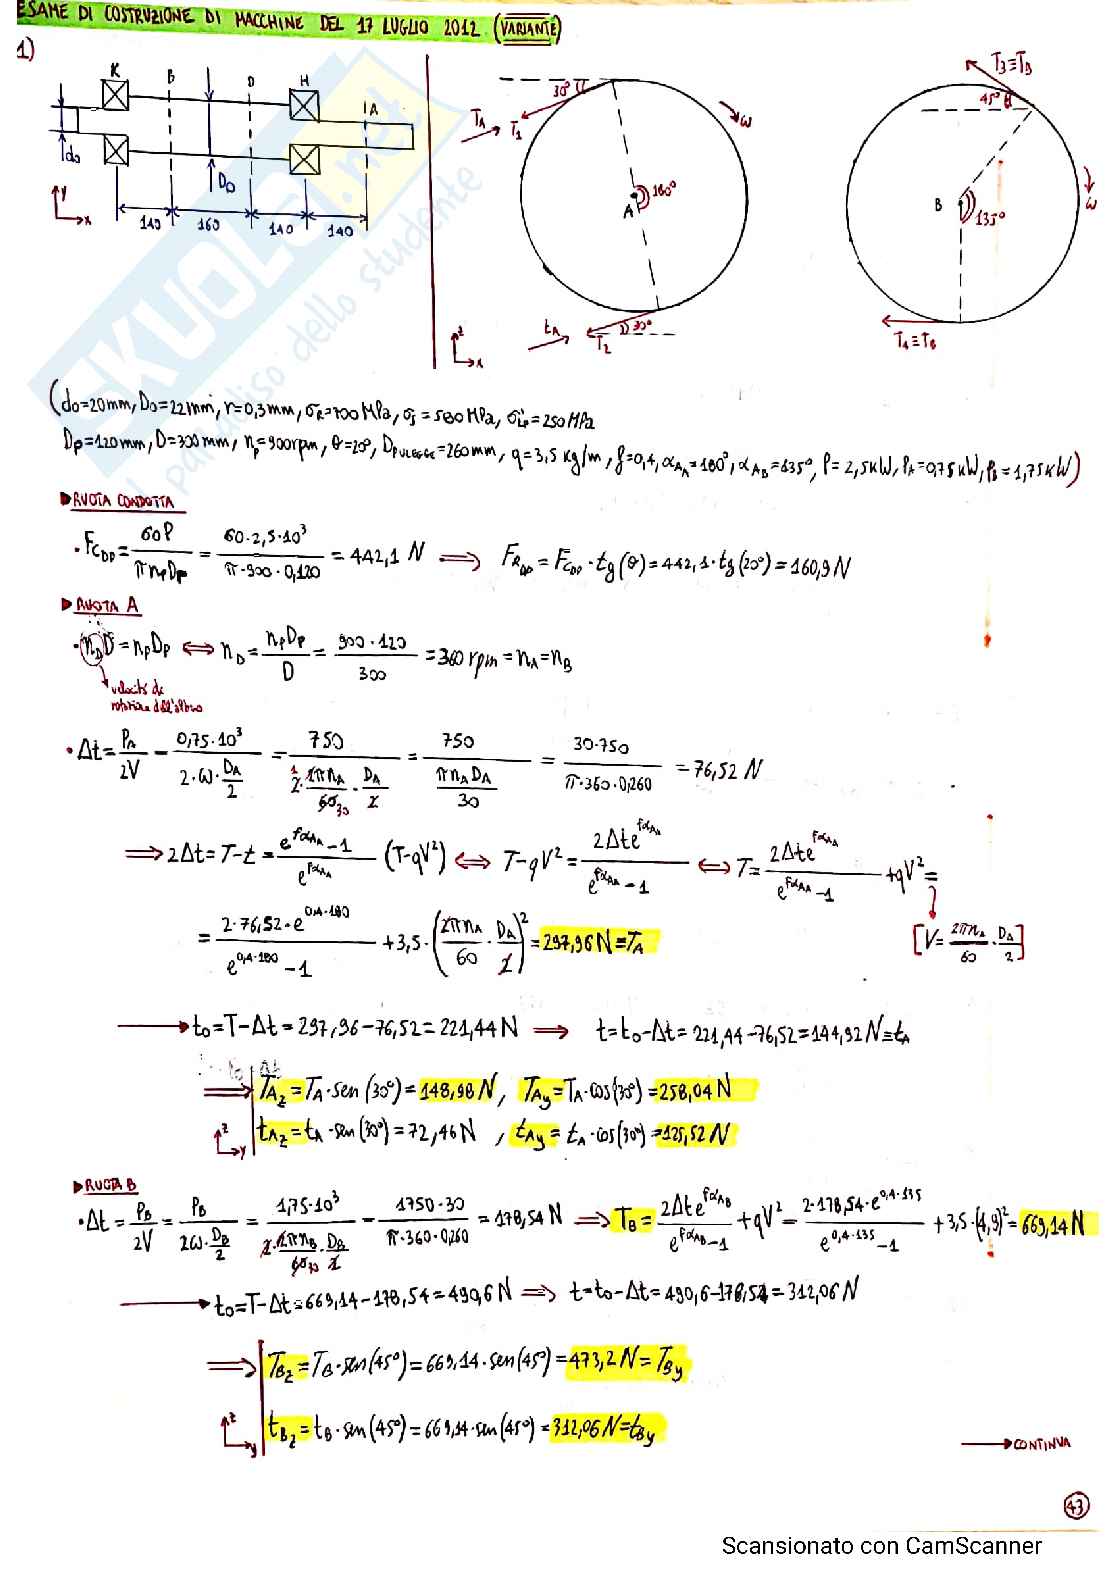 ESAME DI COSTRUZIONE DI MACCHINE DEL 17 LUGLIO 2012 (VARIANTE)
1)
K B D H A
d₀ D₀
y x
140 160 140 140
30° T_A T₁ ω
A 180°
t_A T₂ 30°
z x
T₃≡T_B
45° ω
B 135°
T₄≡T_B
SKUOLA.net
il paradiso dello studente
(d₀=20mm, D₀=22mm, r=0,3mm, σ_R=700MPa, σ_s=580MPa, σ'_Lp=250MPa
D_p=120mm, D=300mm, n_p=900rpm, θ=20°, D_PULEGGE=260mm, q=3,5 kg/m, f=0,4, α_AA=180°, α_AB=135°, P=2,5kW, P_A=0,75kW, P_B=1,75kW)
▶RUOTA CONDOTTA
· F_CDP = 60P / πn_pD_p = 60·2,5·10³ / π·900·0,120 = 442,1 N ⟹ F_RDP = F_CDP·tg(θ) = 442,1·tg(20°) = 160,9N
▶RUOTA A
· n_D D = n_pD_p ⟺ n_D = n_pD_p / D = 900·120 / 300 = 360rpm = n_A = n_B
velocità di
rotazione dell'albero
· Δt = P_A / 2V – 0,75·10³ / 2·ω·D_A/2 = 750 / 2·2πn_A/60·D_A/2 = 750 / πn_AD_A/30 = 30·750 / π·360·0,260 = 76,52 N
⟹ 2Δt = T-t = e^{fα_AA}-1 / e^{fα_AA} (T-qV²) ⟺ T-qV² = 2Δte^{fα_AA} / e^{fα_AA}-1 ⟺ T = 2Δte^{fα_AA} / e^{fα_AA}-1 + qV² =
= 2·76,52·e^{0,4·180} / e^{0,4·180}-1 + 3,5·(2πn_A/60 · D_A/2)² = 297,96N = T_A [V = 2πn_A/60 · D_A/2]
→ t₀ = T-Δt = 297,96-76,52 = 221,44N ⟹ t = t₀-Δt = 221,44-76,52 = 144,92N = t_A
⟹ T_Az = T_A·sen(30°) = 148,98N, T_Ay = T_A·cos(30°) = 258,04N
z y t_Az = t_A·sen(30°) = 72,46N, t_Ay = t_A·cos(30°) = 125,52N
▶RUOTA B
· Δt = P_B / 2V = P_B / 2ω·D_B/2 = 1,75·10³ / 2·2πn_B/60·D_B/2 – 1750·30 / π·360·0,260 = 178,54N ⟹ T_B = 2Δte^{fα_AB} / e^{fα_AB}-1 + qV² = 2·178,54·e^{0,4·135} / e^{0,4·135}-1 + 3,5·(4,9)² = 669,14N
→ t₀ = T-Δt = 669,14-178,54 = 490,6N ⟹ t = t₀-Δt = 490,6-178,54 = 312,06N
⟹ T_Bz = T_B·sen(45°) = 669,14·sen(45°) = 473,2N = T_By
z y t_Bz = t_B·sen(45°) = 669,14·sen(45°) = 312,06N = t_By
→ CONTINVA
43
Scansionato con CamScanner